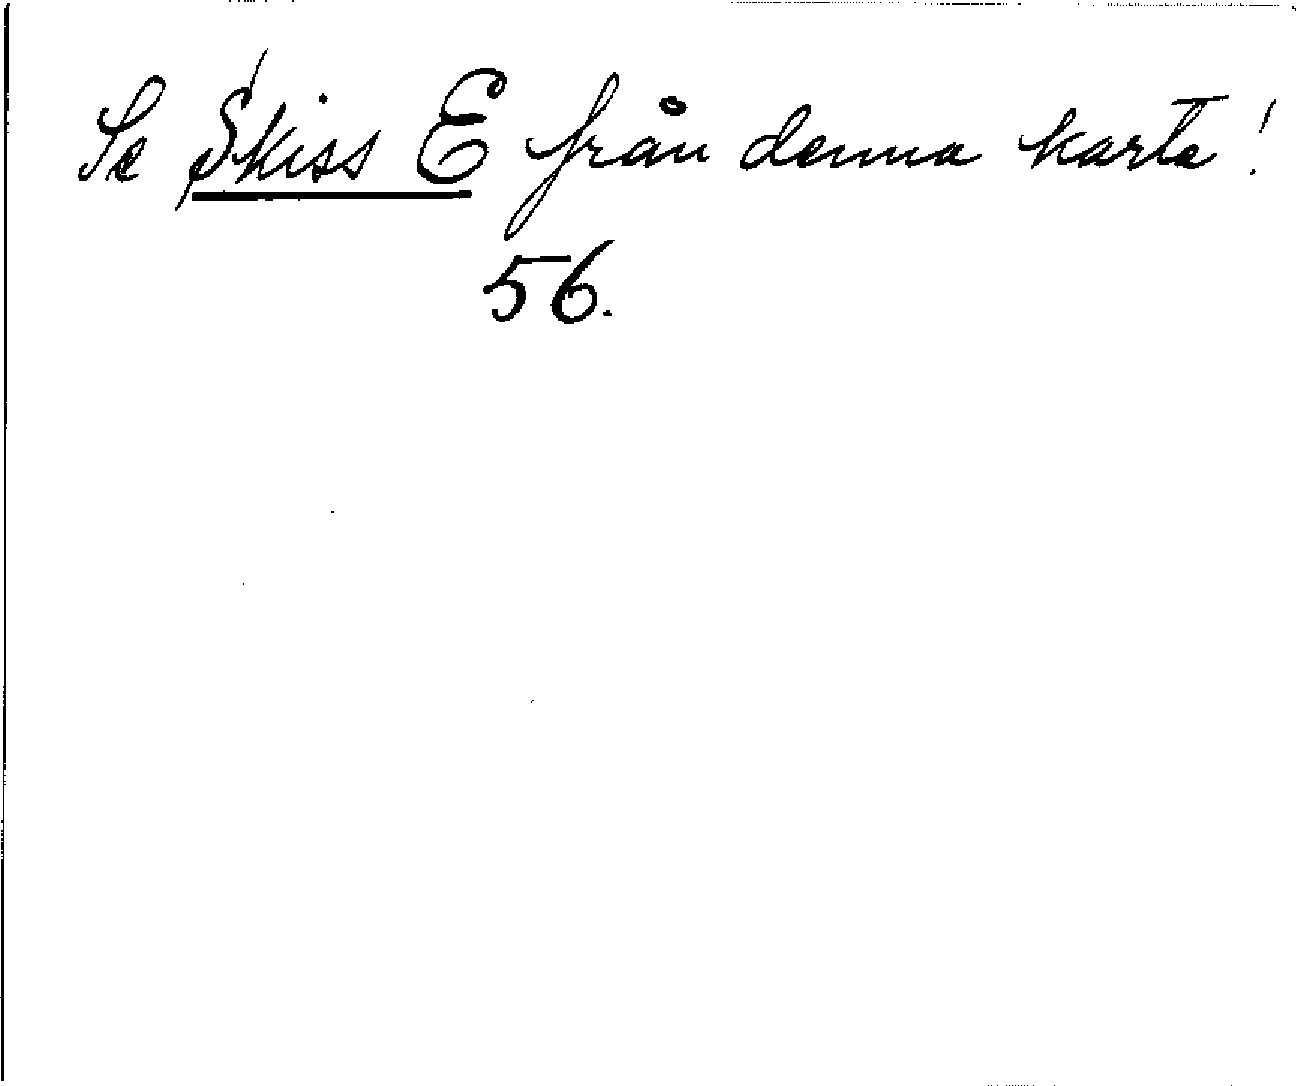 Se Skiss E från denna karta!
56.